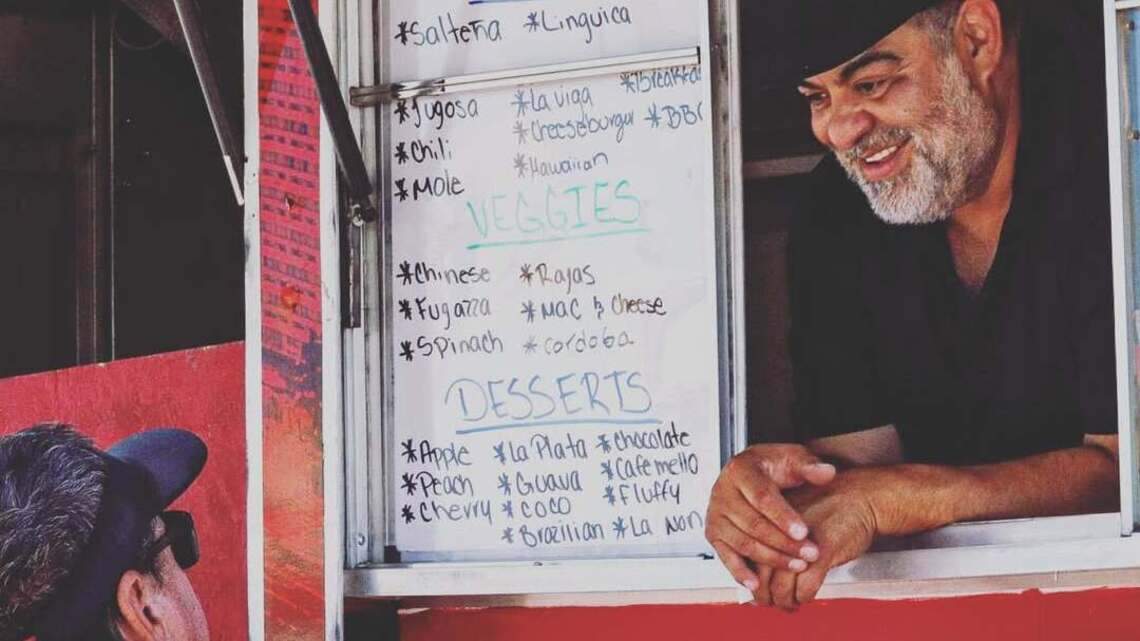 *Salteña *Linguica
*Jugosa *La viga *Breakfas
*Cheeseburger *BBQ
*Chili
*Hawaiian
*Mole
VEGGIES
*Chinese *Rajas
*Fugazza *Mac & Cheese
*Spinach *Cordoba
DESSERTS
*Apple *La Plata *Chocolate
*Peach *Guava *Cafe mello
*Cherry *Coco *Fluffy
*Brazilian *La Non